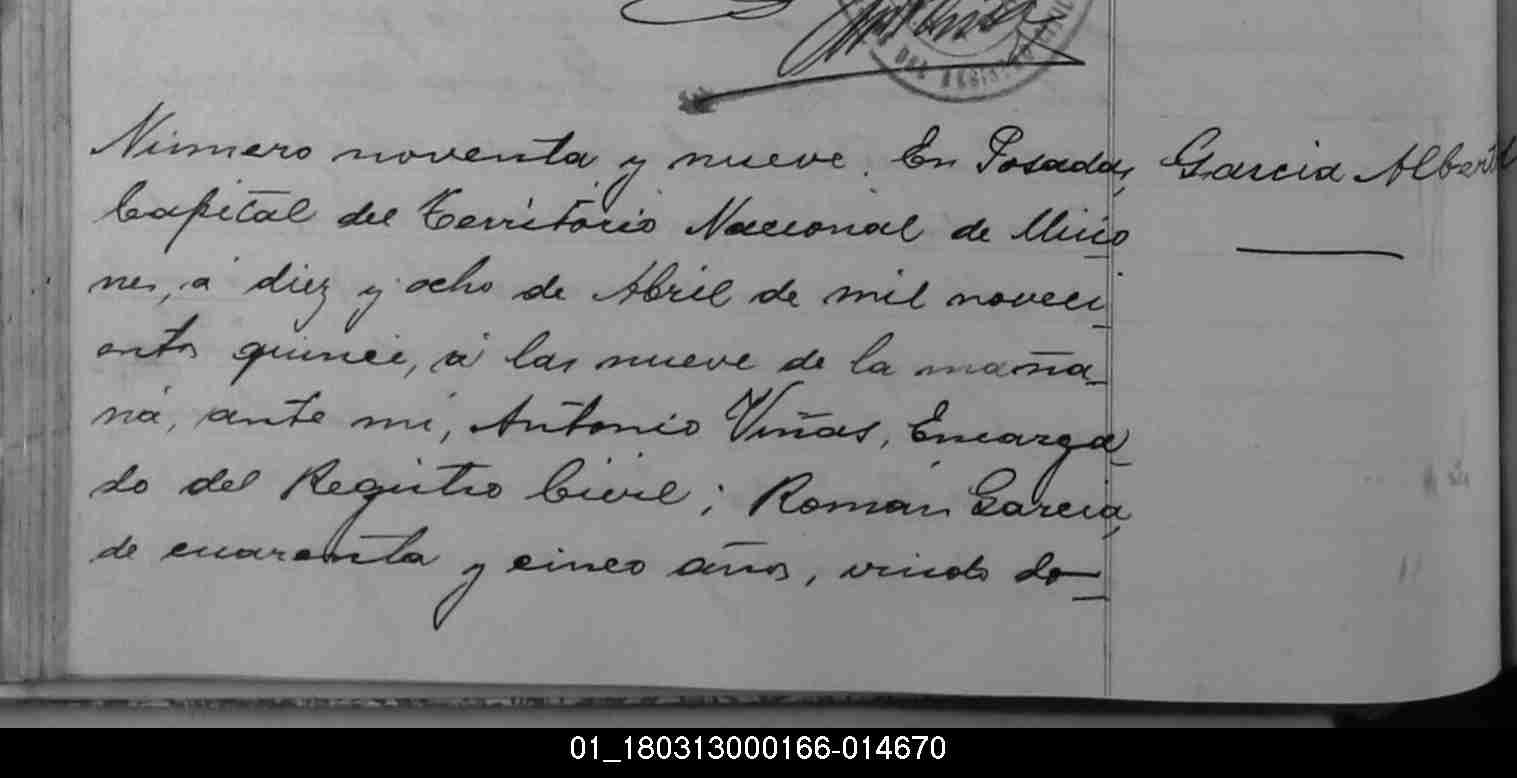 DEL REGISTRO CIVIL
Número noventa y nueve. En Posadas,
Capital del Territorio Nacional de Misio
nes, á diez y ocho de Abril de mil noveci
entos quince, á las nueve de la maña
na, ante mi, Antonio Viñas, Encarga
do del Registro Civil; Román García,
de cuarenta y cinco años, viudo do
García Alberto
01_180313000166-014670